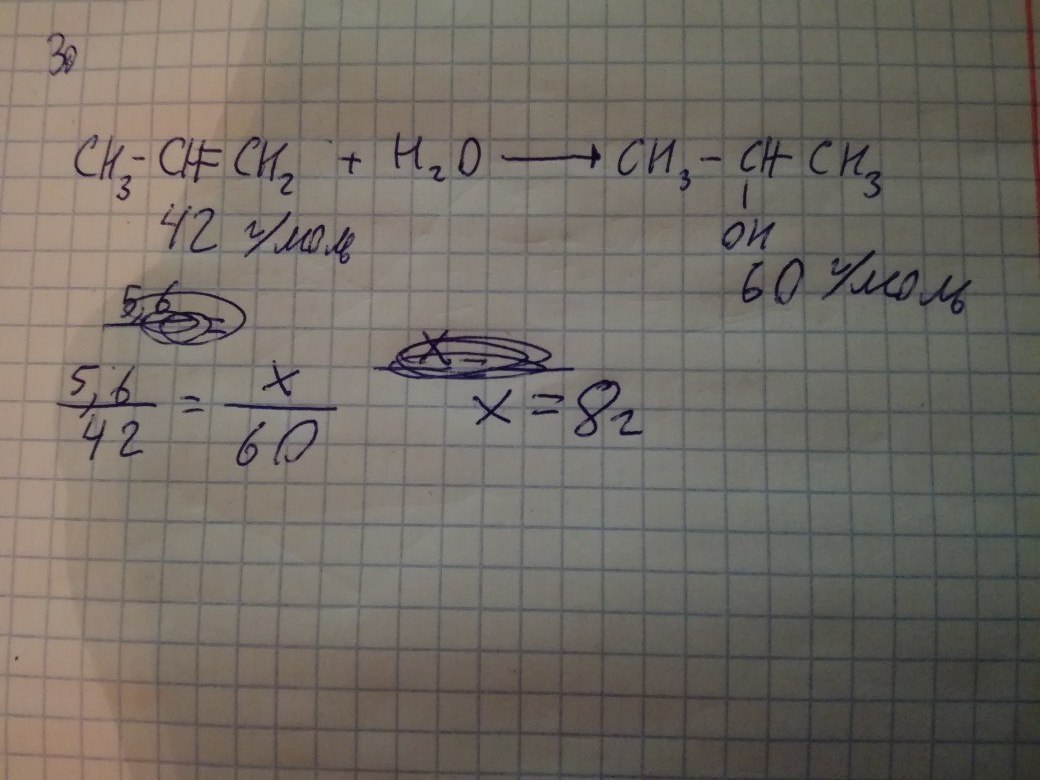 30
CH₃-CH=CH₂ + H₂O ⟶ CH₃-CH-CH₃
OH
42 г/моль
60 г/моль
5,6
x -
5,6/42 = x/60
x = 8г